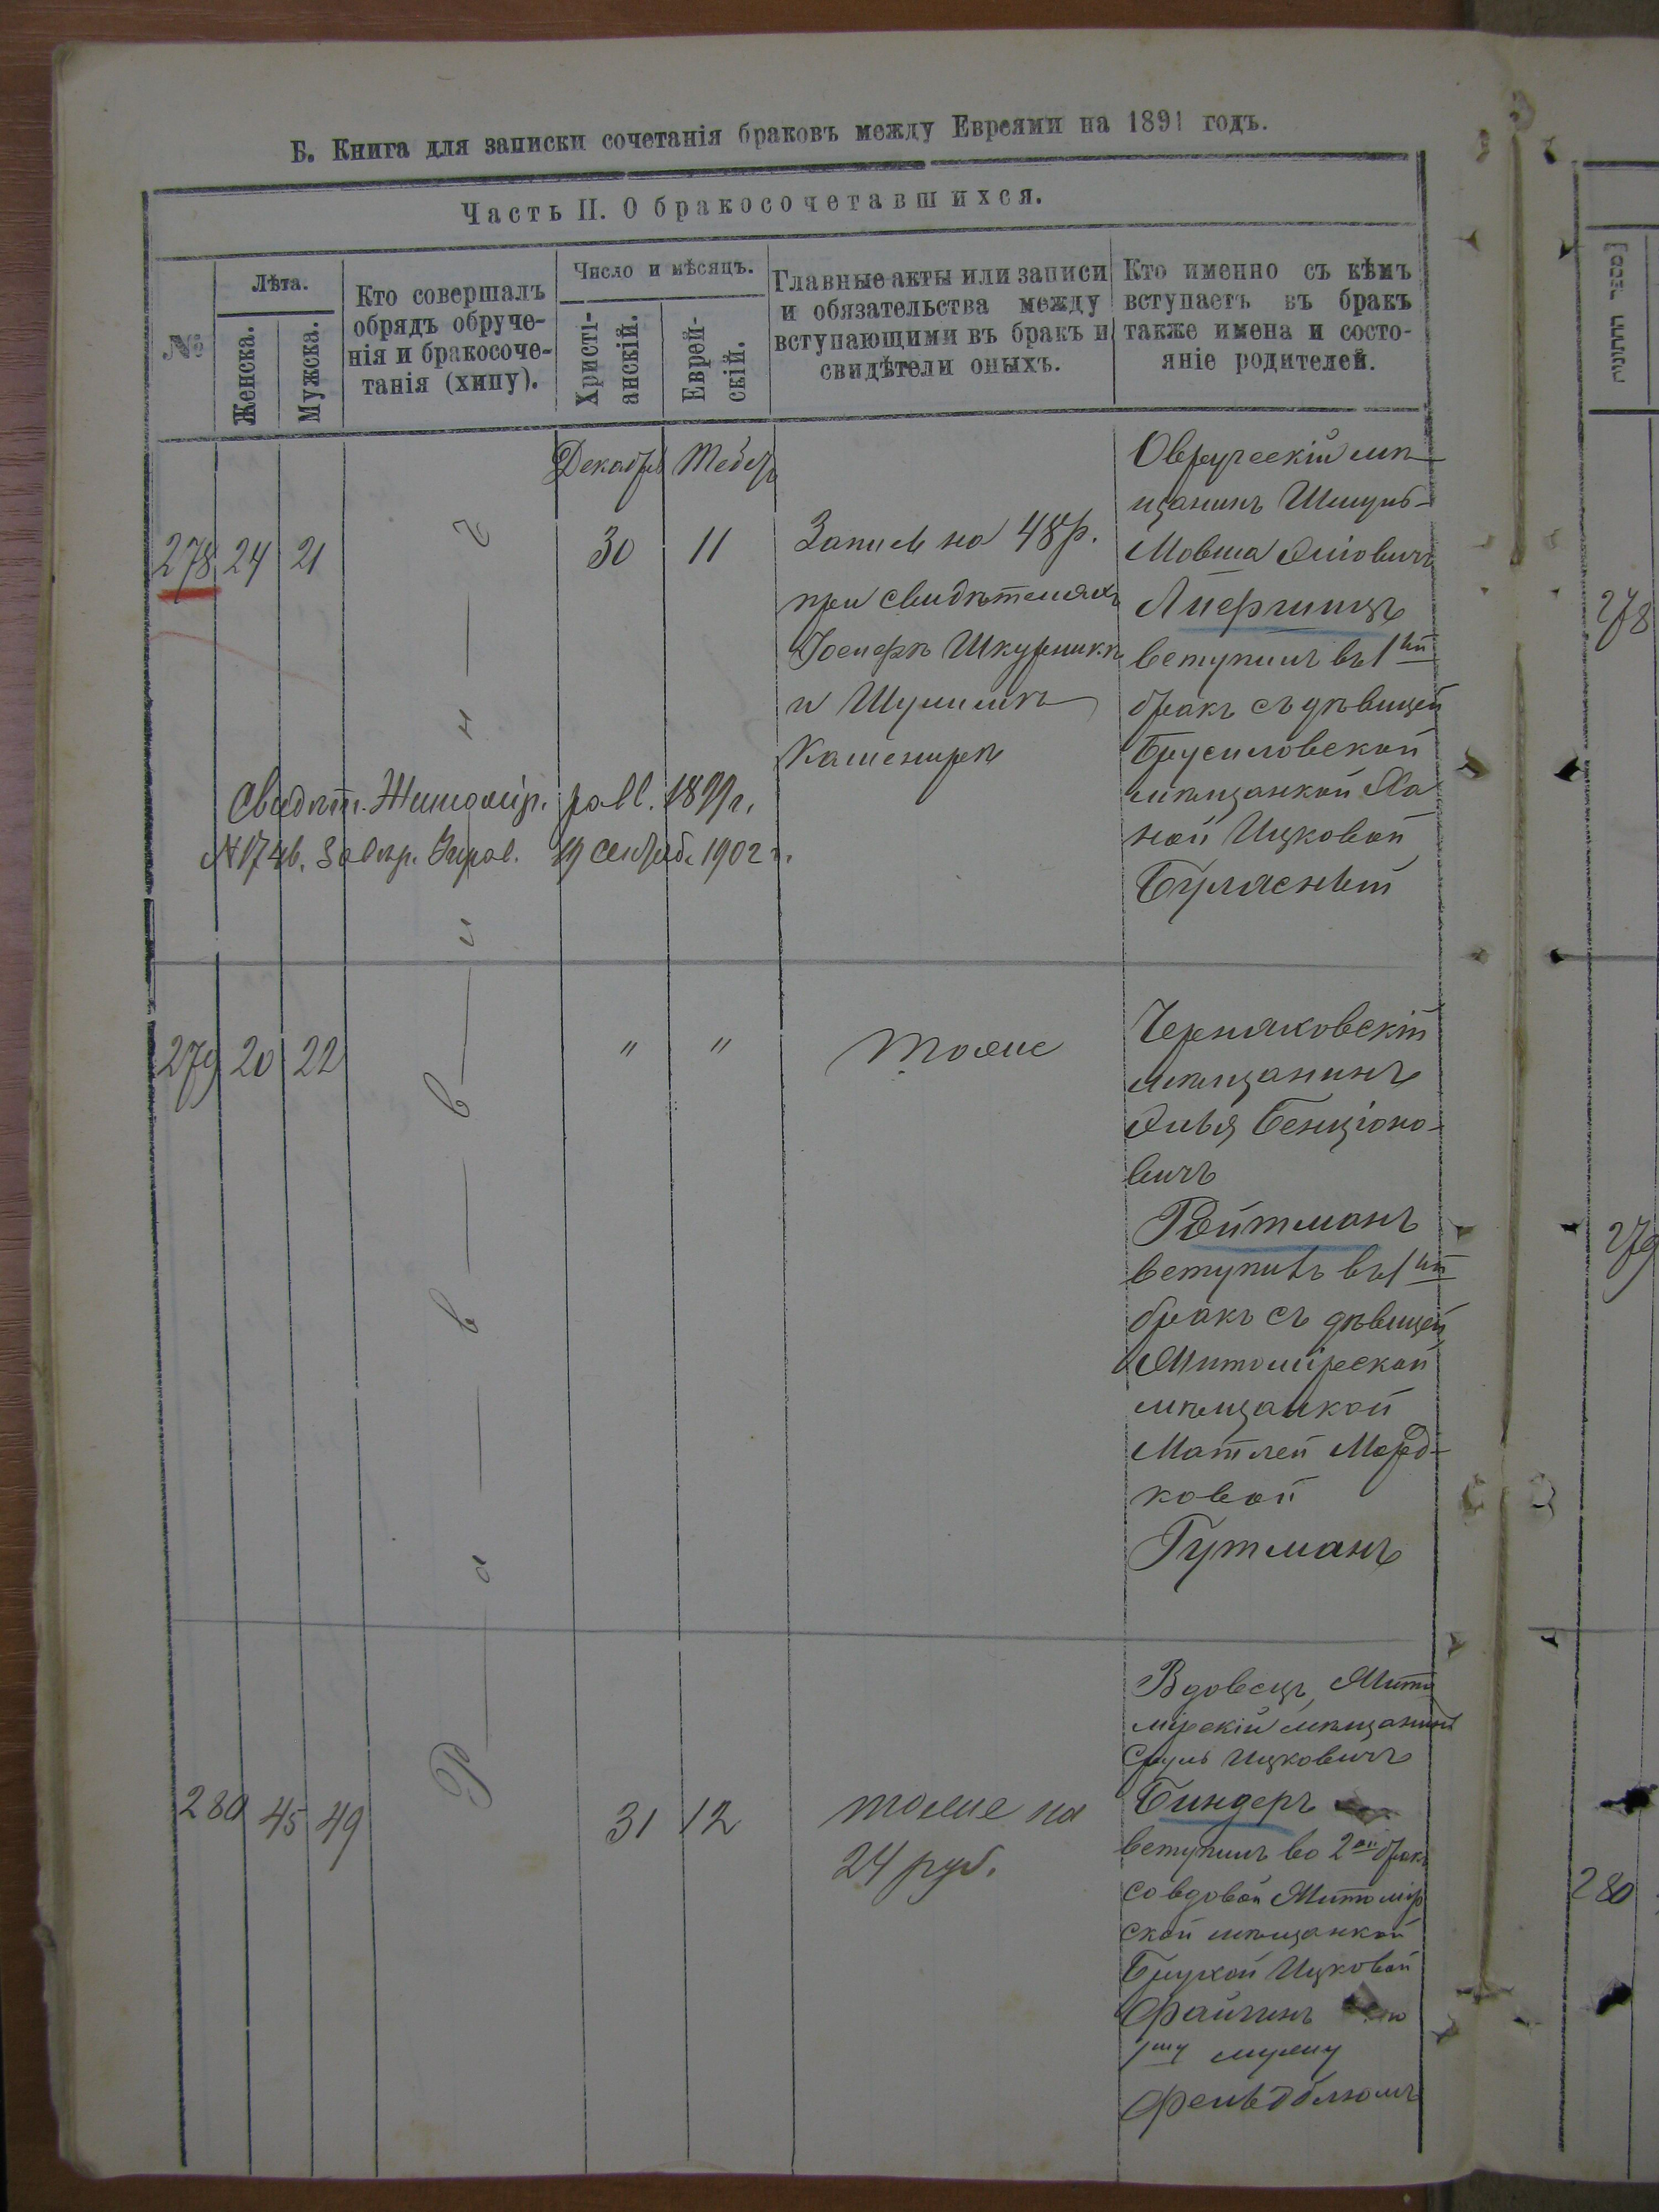 Б. Книга для записки сочетанія браковъ между Евреями на 1891 годъ.
Часть II. О бракосочетавшихся.
№
Лѣта.
Женска.
Мужска.
Кто совершалъ
обрядъ обруче-
нія и бракосоче-
танія (хипу).
Число и мѣсяцъ.
Христі-
анскій.
Еврей-
скій.
Главные акты или записи
и обязательства между
вступающими въ бракъ и
свидѣтели оныхъ.
Кто именно съ кѣмъ
вступаетъ въ бракъ
также имена и состо-
яніе родителей.
Раввинъ
Декабрь Тебетъ
278 24 21 30 11
Запись на 48 р.
при свидѣтеляхъ
Іосифѣ Шкурникѣ
и Шулимѣ
Кашенирѣ
Овручскій мѣ-
щанинъ Шмуль-
Мовша
вступилъ въ 1ый
бракъ съ дѣвицей
Брусиловской
мѣщанкой Ха
ной Ицковой
Свидѣт. Житомір. равв. 1899 г.
19 Сентяб. 1902 г.
279 20 22 " "
тоже
Черняховскій
мѣщанинъ
Эль Бенціоно-
вичъ
Ройтманъ
вступилъ въ 1ый
бракъ съ дѣвицей
Житомірской
мѣщанкой
Матлей Морд-
ковой
Гутманъ
280 45 49 31 12
тоже на
24 руб.
Вдовецъ, Жито
мірскій мѣщанинъ
Сруль Ицковичъ
Биндеръ
вступилъ во 2ой бракъ
со вдовой Житомір
ской мѣщанкой
Брухой Ицковой
1му мужу
Фельдблюмъ
278
279
280